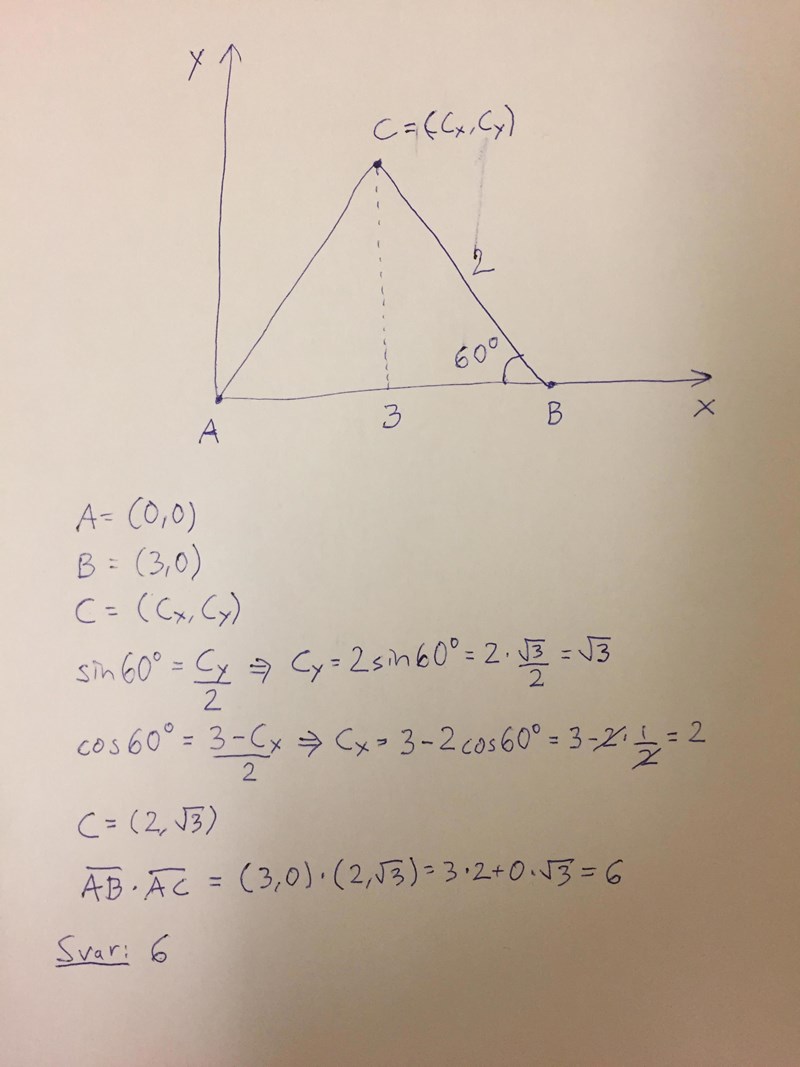 y
C = (Cx, Cy)
2
60°
A
3
B
x
A = (0,0)
B = (3,0)
C = (Cx, Cy)
sin 60° = Cy/2 ⇒ Cy = 2 sin 60° = 2 · √3/2 = √3
cos 60° = (3 - Cx)/2 ⇒ Cx = 3 - 2 cos 60° = 3 - 2 · 1/2 = 2
C = (2, √3)
A̅B̅ · A̅C̅ = (3,0) · (2, √3) = 3 · 2 + 0 · √3 = 6
Svar: 6